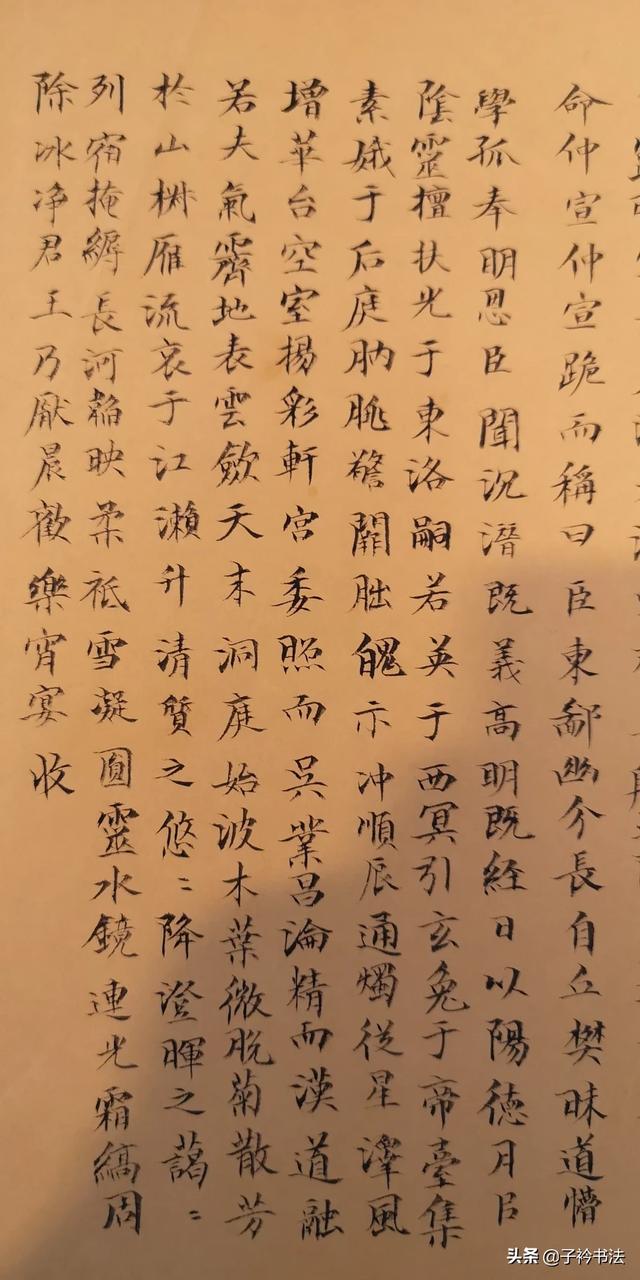 命仲宣仲宣跪而稱曰臣東鄙幽介長自丘樊昧道懵
學孤奉明恩臣聞沉潛既義高明既經日以陽德月㠯
陰靈擅扶光于東洛嗣若英于西冥引玄兔于帝臺集
素娥于后庭朒朓警闕朏魄示冲順辰通燭従星澤風
增華台空室揚彩軒宮委照而吳業昌淪精而漢道融
若夫氣霽地表雲斂天末洞庭始波木葉微脫菊散芳
於山椒雁流哀于江瀨升清質之悠〻降澄暉之藹〻
列宿掩縟長河韜映柔祇雪凝圓靈水鏡連光霜縞周
除冰净君王乃厭晨歡樂宵宴收
头条 @子衿书法